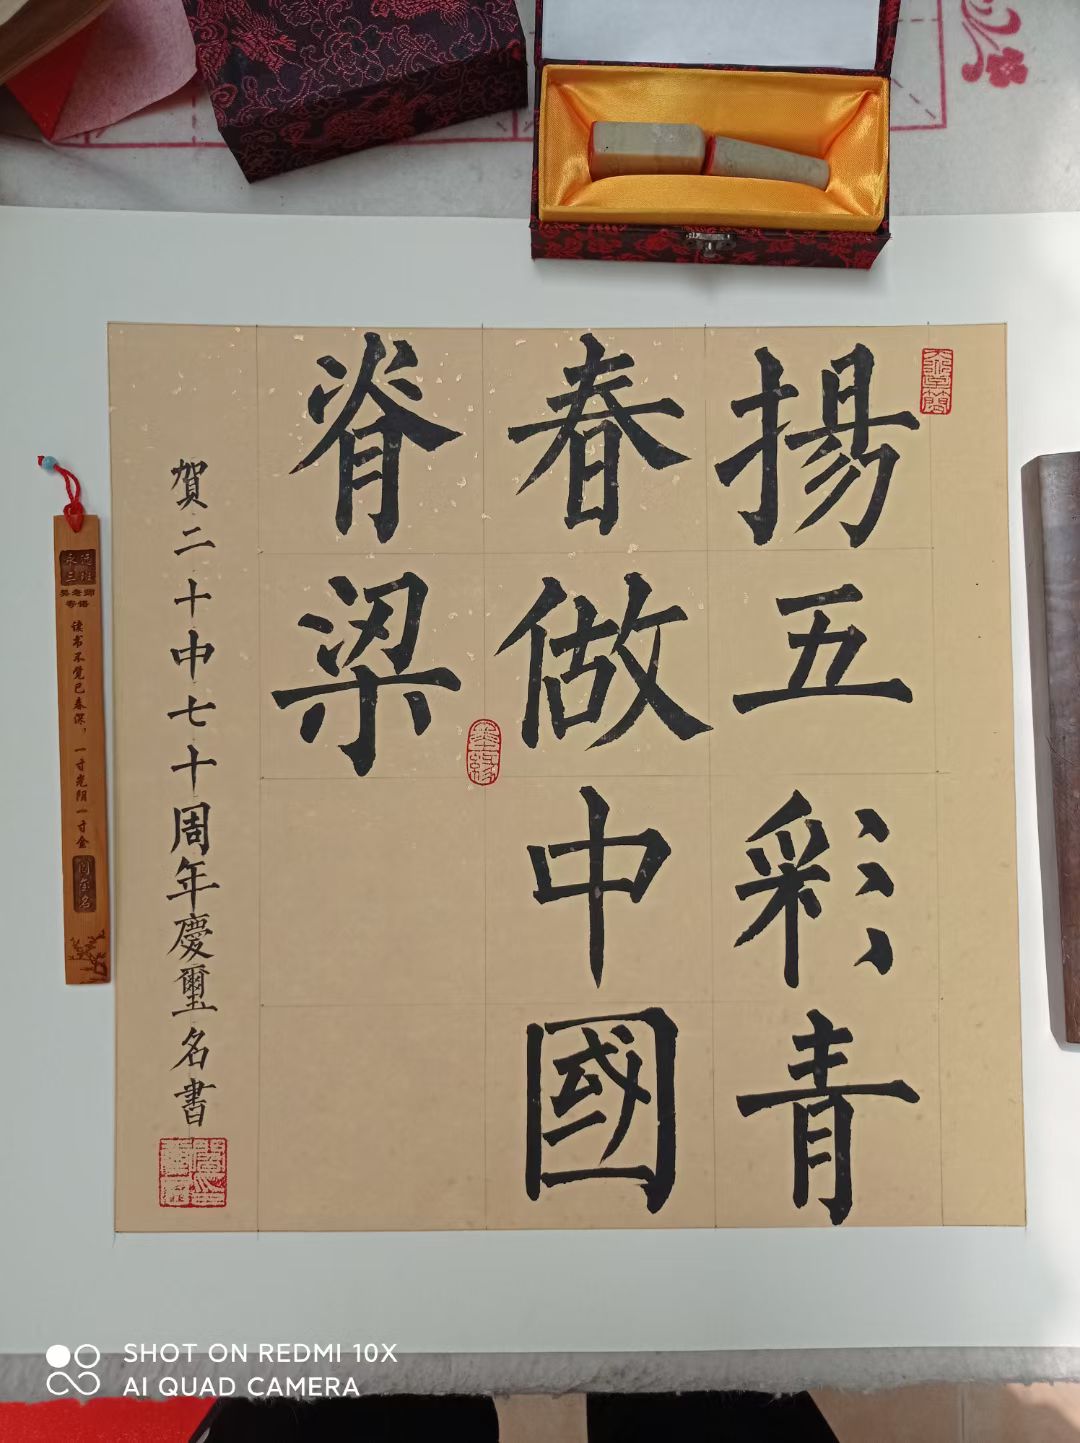 揚五彩青
春做中國
脊梁
賀二十中七十周年慶璽名書
读书不觉已春深，一寸光阴一寸金
SHOT ON REDMI 10X
AI QUAD CAMERA